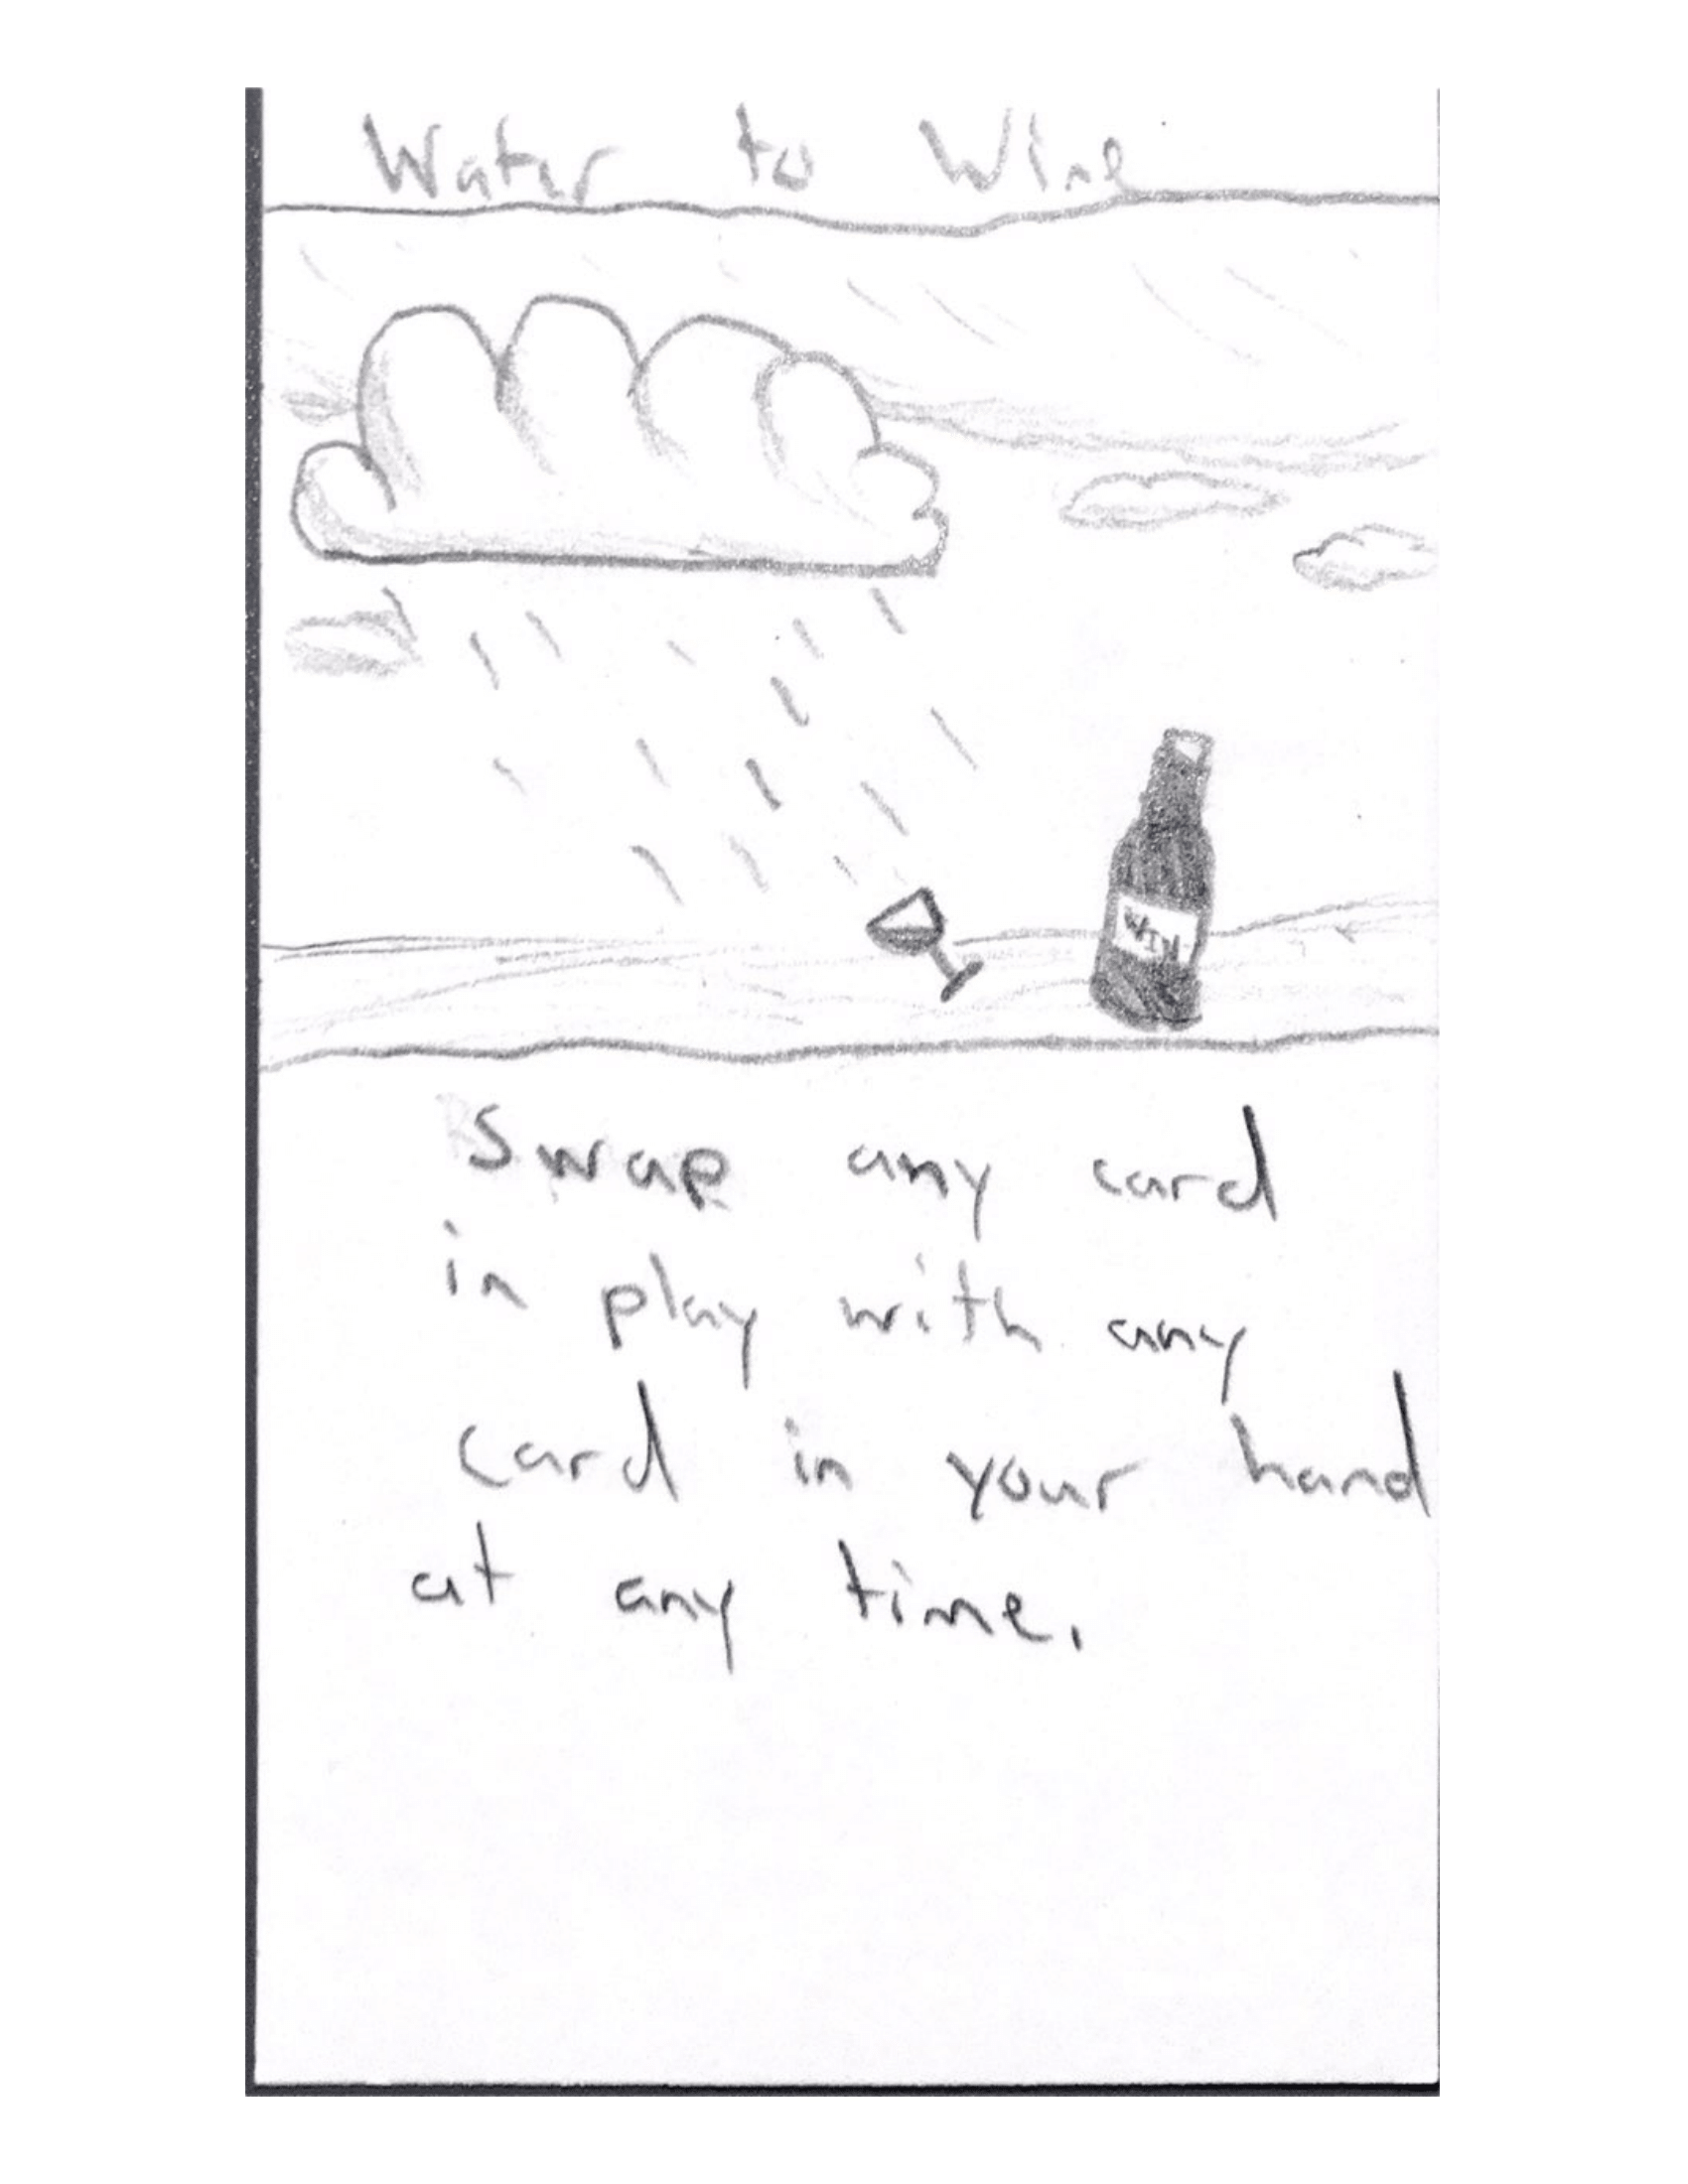 Water to Wine
WIN
Swap any card
in play with any
card in your hand
at any time.